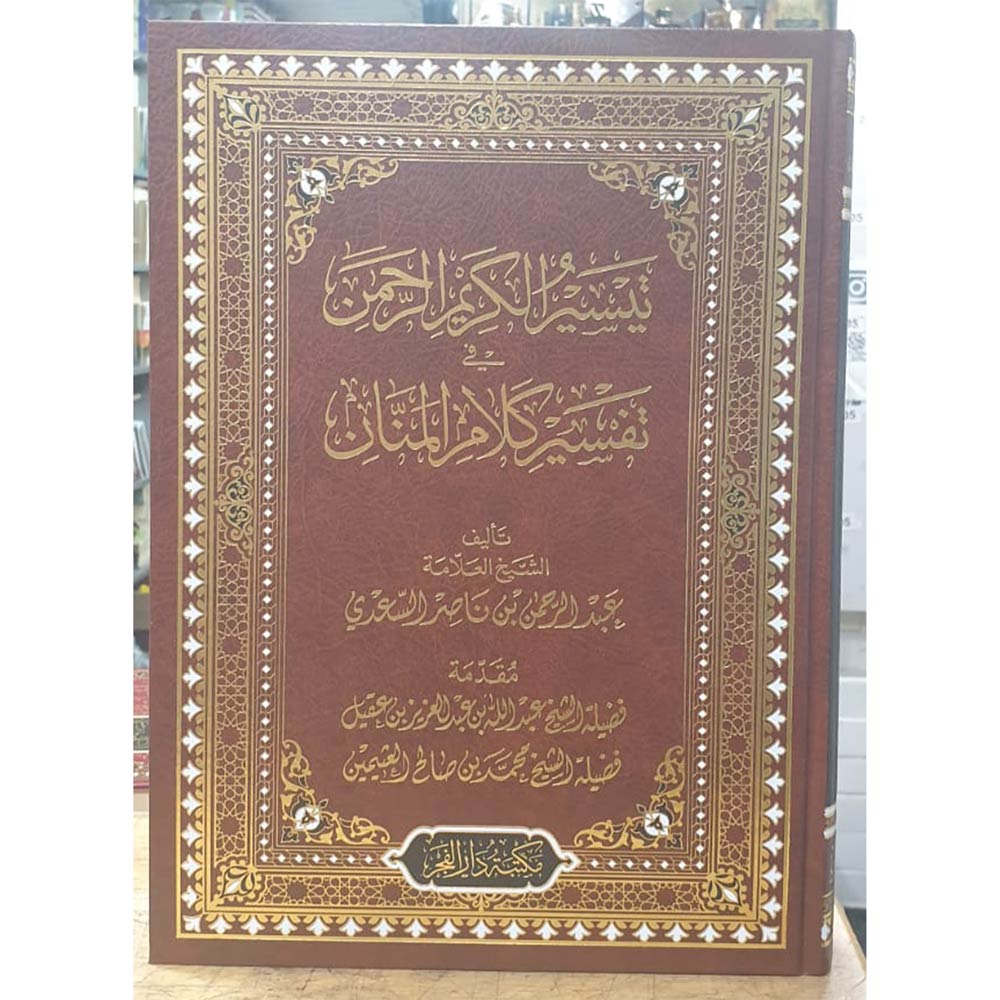 تَيسِيرُ الكَرِيمِ الرَّحمَنِ
في
تَفسِيرِ كَلَامِ المَنَّانِ
تأليف
الشيخ العلّامة
عبد الرحمن بن ناصر السّعدي
مُقَدّمة
فضيلة الشيخ عبد الله بن عبد العزيز بن عقيل
فضيلة الشيخ محمد بن صالح العثيمين
مكتبة دار الفجر